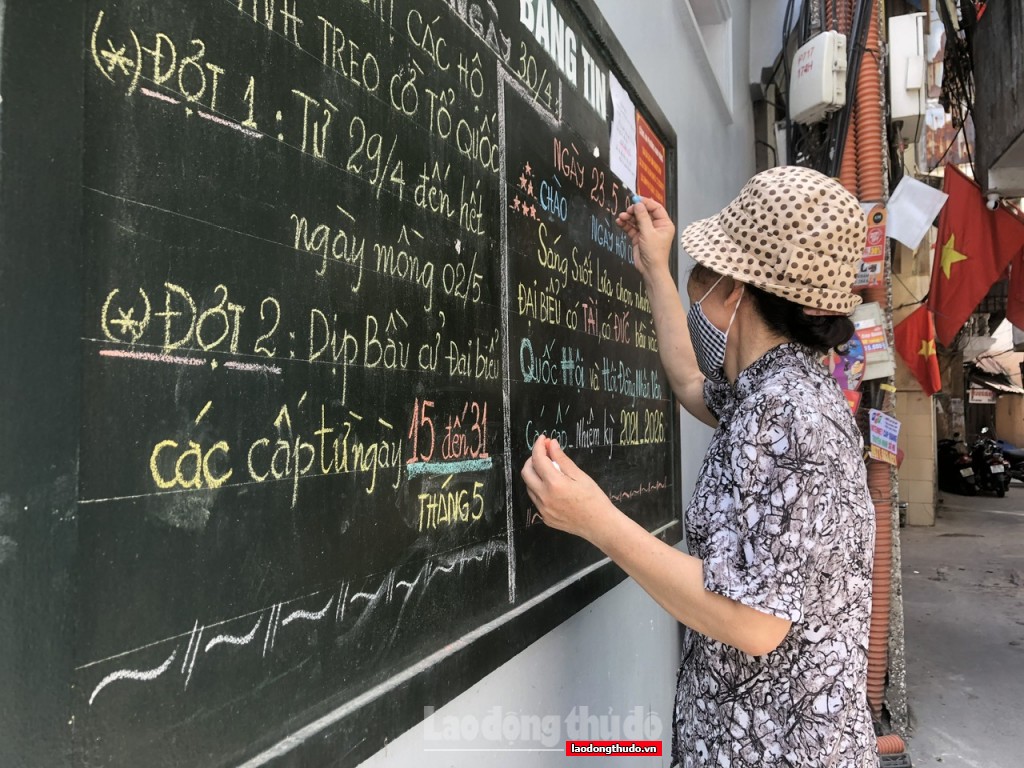 BẢNG TIN
CÁC HỘ
TREO CỜ TỔ QUỐC
(*) ĐỢT 1 : TỪ 29/4 đến hết
ngày mồng 02/5
(*) ĐỢT 2 : Dịp Bầu cử Đại biểu
các cấp từ ngày 15 đến 31
THÁNG 5
NGÀY 30/4
NGÀY 23.5
CHÀO
NGÀY HỘI
Sáng Suốt Lựa chọn
ĐẠI BIỂU CÓ TÀI có ĐỨC
Quốc Hội và Hội Đồng Nhân Dân
Các cấp - Nhiệm kỳ 2021.2026.
Lao động thủ đô
laodongthudo.vn